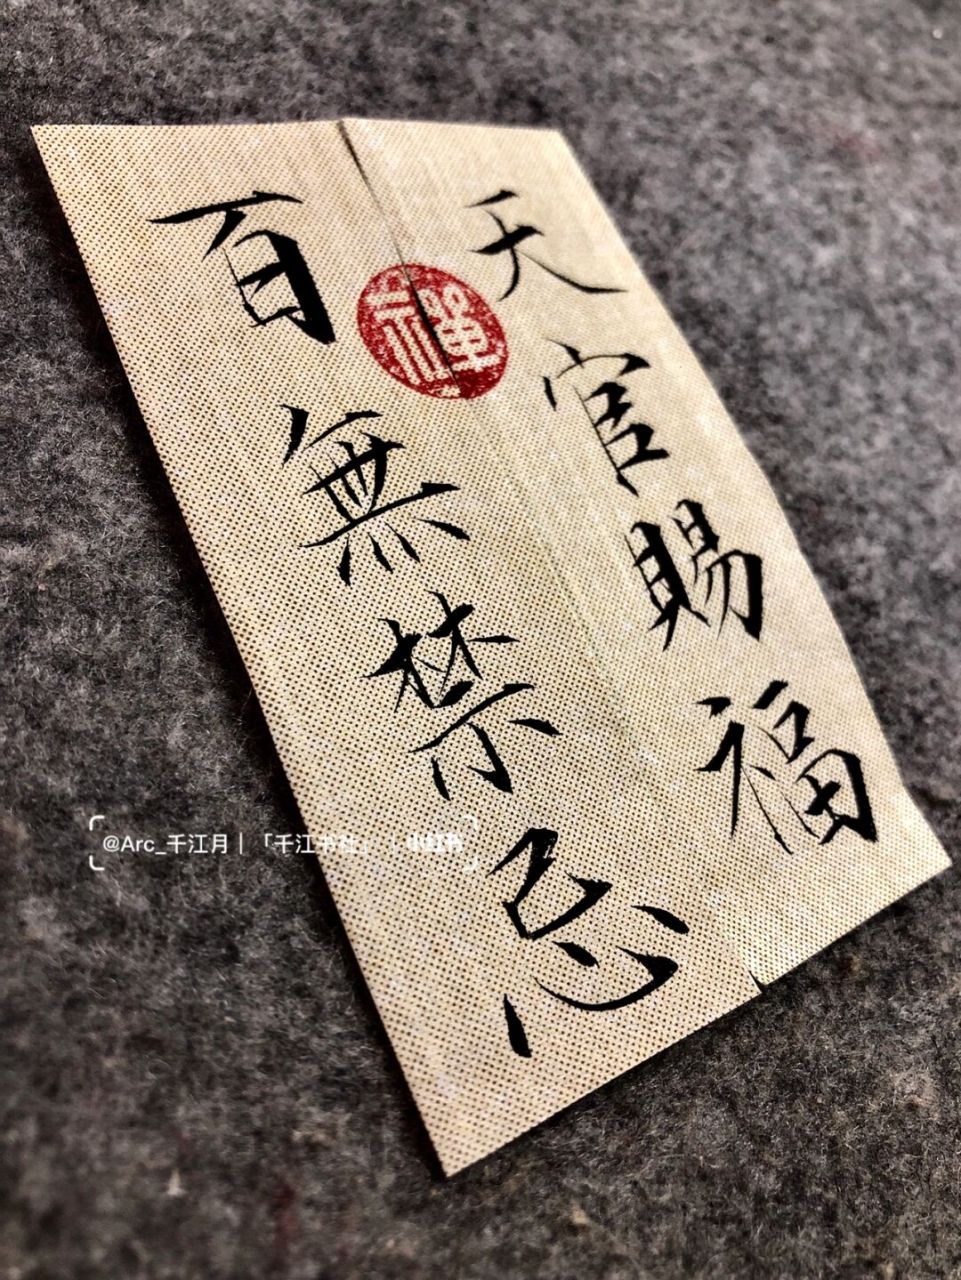 天官賜福
百無禁忌
禪
@Arc_千江月｜「千江书社」｜小红书